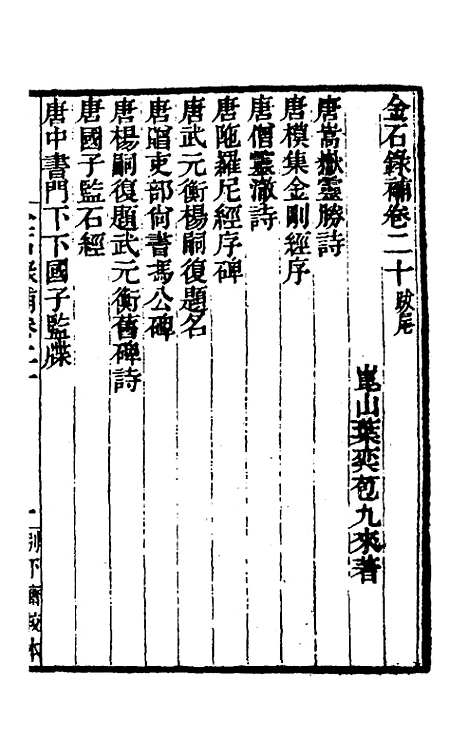 金石錄補卷二十 跋尾
崑山葉奕苞九來著
唐嵩嶽靈勝詩
唐模集金剛經序
唐僧靈澈詩
唐陁羅尼經序碑
唐武元衡楊嗣復題名
唐贈吏部尙書馮公碑
唐楊嗣復題武元衡舊碑詩
唐國子監石經
唐中書門下下國子監牒
金石錄補卷二十
一
別下齋校本